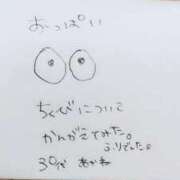 おっぱい
ちくびについて
かんがえてみた。
ふりでした。
30代 あかね